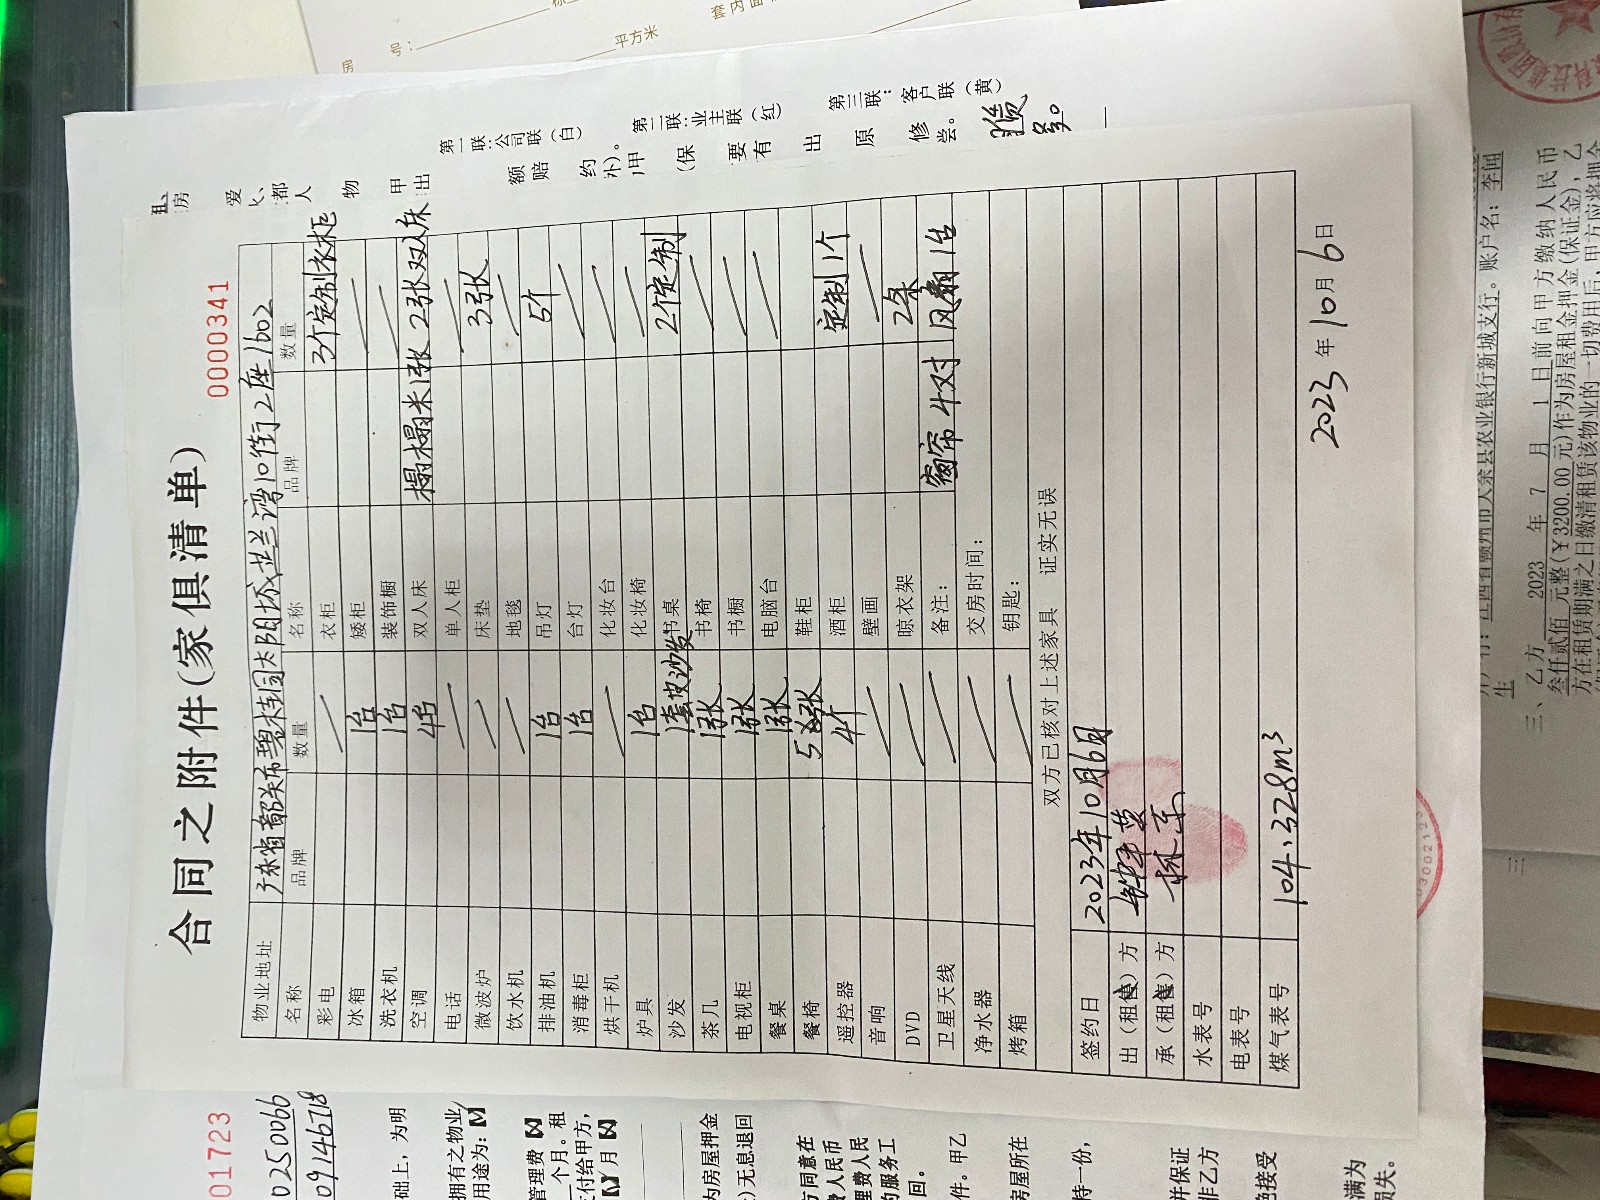 合同之附件(家俱清单)
0000341
物业地址 广东省韶关市碧桂园太阳城芷兰湾10街2座1602
名称 品牌 数量 名称 品牌 数量
彩电 衣柜 3个定制衣柜
冰箱 1台 矮柜
洗衣机 1台 装饰橱
空调 4台 双人床 榻榻米1张 2张双人床
电话 单人柜
微波炉 床垫 3张
饮水机 地毯
排油机 1台 吊灯 5个
消毒柜 1台 台灯
烘干机 化妆台
炉具 1台 化妆椅
沙发 1套皮沙发 书桌 2个定制
茶几 1张 书椅
电视柜 1张 书橱
餐桌 1张 电脑台
餐椅 5张 鞋柜
遥控器 4个 酒柜 定制1个
音响 壁画
DVD 晾衣架 2条
卫星天线 备注: 窗帘4对 风扇1台
净水器 交房时间:
烤箱 钥匙:
双方已核对上述家具 证实无误
签约日 2023年10月6日
出(租售)方
承(租售)方
水表号
电表号
煤气表号 104.328m³
2023年10月6日
第一联:公司联(白)
第二联:业主联(红)
第三联:客户联(黄)
房 号:
平方米
套内面
01723
0250066
09146718
础上，为明
拥有之物业
用途为:
管理费
个月。租
付给甲方，
月
内房屋押金
无息退回
方同意在
人民币
理费人民
的服务工
回。
件。甲乙
房屋所在
持一份，
并保证
非乙方
绝接受
满为
损失。
新城支行。账户名:李闻
生
三、乙方 2023 年 7 月 1 日前向甲方缴纳人民币
叁仟贰佰元整(¥3200.00元)作为房屋租金押金(保证金),乙
方在租赁期满之日缴清租赁该物业的一切费用后，甲方应将押金